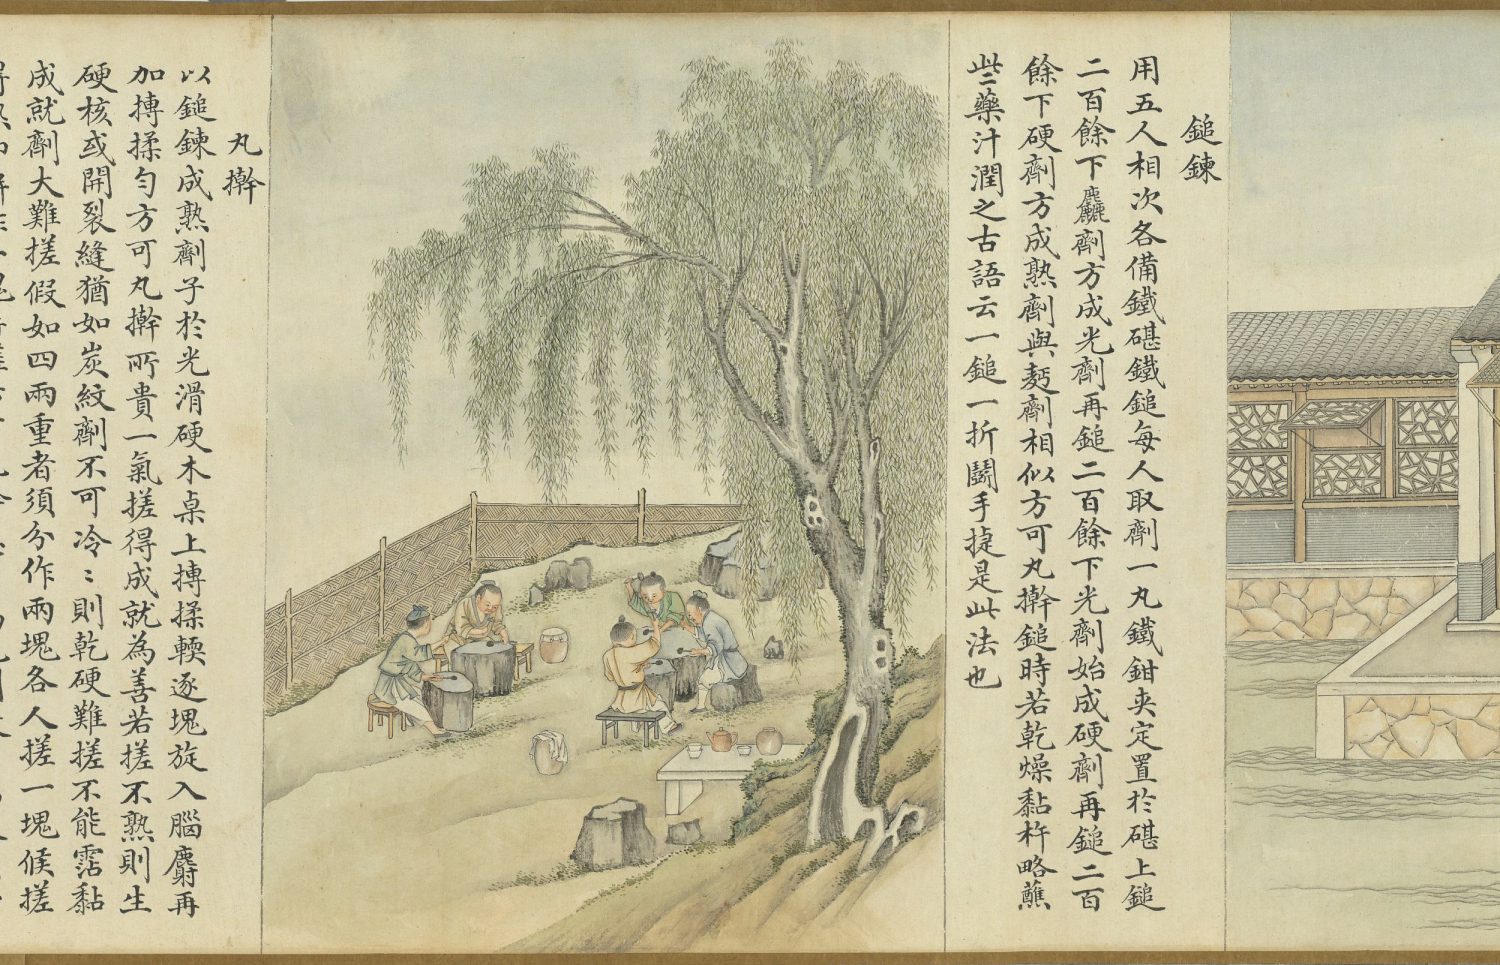 鎚鍊
用五人相次各備鐵碪鐵鎚每人取劑一丸鐵鉗夾定置於碪上鎚
二百餘下麤劑方成光劑再鎚二百餘下光劑始成硬劑再鎚二百
餘下硬劑方成熟劑與麪劑相似方可丸擀鎚時若乾燥黏杵略蘸
些藥汁潤之古語云一鎚一折鬪手捷是此法也
丸擀
以鎚鍊成熟劑子於光滑硬木桌上摶揉輭逐塊旋入腦麝再
加摶揉勻方可丸擀所貴一氣搓得成就為善若搓不熟則生
硬核或開裂縫猶如炭紋劑不可冷冷則乾硬難搓不能霑黏
成就劑大難搓假如四兩重者須分作兩塊各人搓一塊候搓